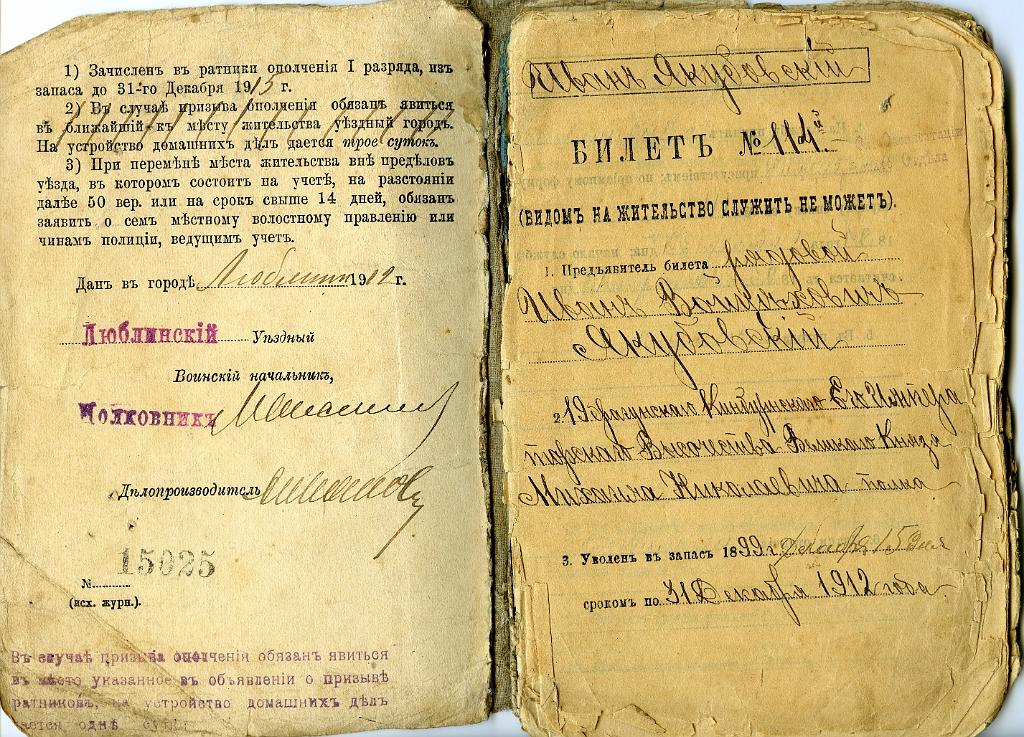 1) Зачисленъ въ ратники ополченія I разряда, изъ
запаса до 31-го Декабря 1915 г.
2) Въ случаѣ призыва ополченія обязан явиться
въ ближайшій къ мѣсту жительства уѣздный городъ.
На устройство домашнихъ дѣлъ дается трое сутокъ.
3) При перемѣнѣ мѣста жительства внѣ предѣловъ
уѣзда, въ которомъ состоитъ на учетѣ, на разстояніи
далѣе 50 вер. или на срокъ свыше 14 дней, обязанъ
заявить о семъ мѣстному волостному правленію или
чинамъ полиціи, ведущимъ учетъ.
Данъ въ городѣ Люблинѣ 1912 г.
Люблинскій Уѣздный
Воинскій начальникъ,
Полковникъ
Дѣлопроизводитель
15025
№
(исх. журн.).
Въ случаѣ призыва ополченія обязан явиться
въ мѣсто указанное въ объявленіи о призывѣ
ратниковъ, на устройство домашнихъ дѣлъ
дается однѣ сутки
Иванъ Якубовскій
БИЛЕТЪ № 114ый
(ВИДОМЪ НА ЖИТЕЛЬСТВО СЛУЖИТЬ НЕ МОЖЕТЪ).
1. Предъявитель билета рядовой
Иванъ Войцѣховичъ
Якубовскій
2. 19 драгунскаго Кинбурнскаго Его Импера
торскаго Высочества Великого Князя
Михаила Николаевича полка
3. Уволенъ въ запасъ 1899 г. декабря 15 дня
срокомъ по 31 Декабря 1912 года